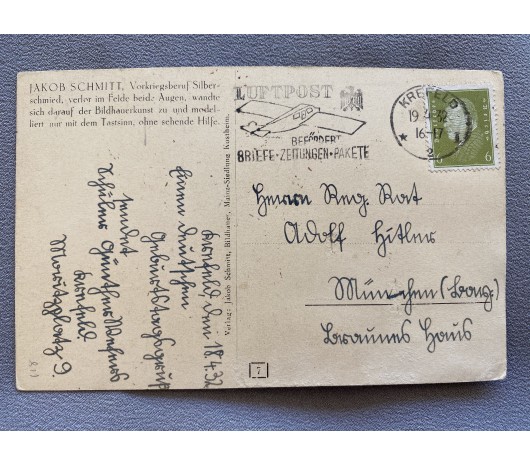 JAKOB SCHMITT, Vorkriegsberuf Silber-
schmied, verlor im Felde beide Augen, wandte
sich darauf der Bildhauerkunst zu und model-
liert nur mit dem Tastsinn, ohne sehende Hilfe.
LUFTPOST
BEFÖRDERT
BRIEFE·ZEITUNGEN·PAKETE
KREFELD
19.4.32
16-17
6
Herrn Reg. Rat
Adolf Hitler
München (Bay.)
Braunes Haus
Verlag: Jakob Schmitt, Bildhauer, Mainz-Siedlung Kunstheim.
7
Krefeld, den 18.4.32
Einen deutschen
Geburtstagsgruß
sendet
Schüler Günther
Krefeld
Moritzplatz 9